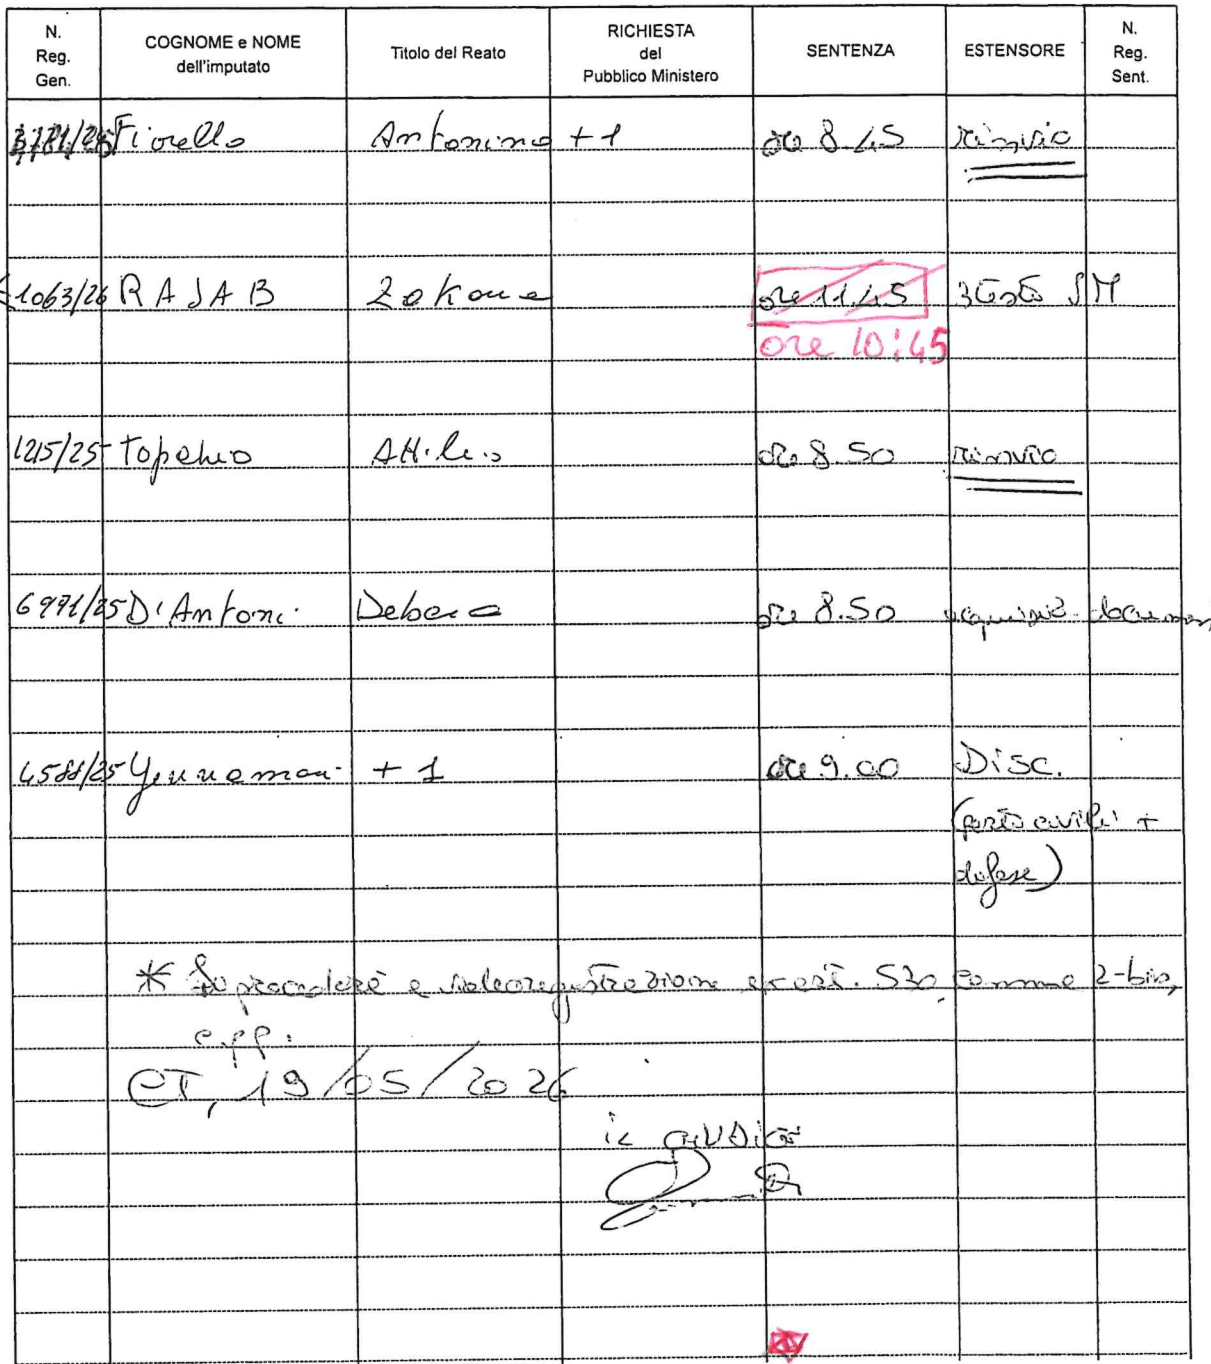 N. Reg. Gen. COGNOME e NOME dell'imputato Titolo del Reato RICHIESTA del Pubblico Ministero SENTENZA ESTENSORE N. Reg. Sent.
Fiorello Antonino + 1 ore 8.45 rinvio
1063/26 RAJAB ore 11.45 3 testi
ore 10:45
1215/25 Attilio ore 8.50 rinvio
D'Antoni Debora ore 8.50
+ 1 ore 9.00 Disc.
(parti civili +
difese)
* Si procederà a videoregistrazione ex art. 510, comma 2-bis,
c.p.p.
CT, 19/05/2026
il GIUDICE